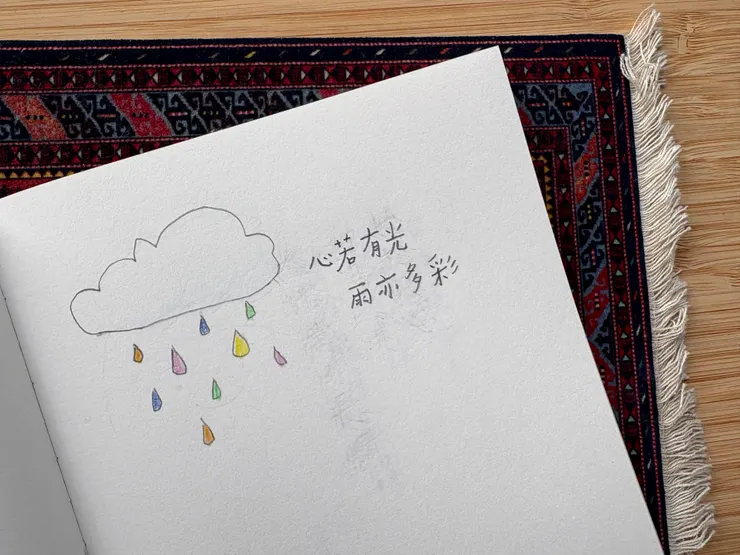 心若有光
雨亦多彩